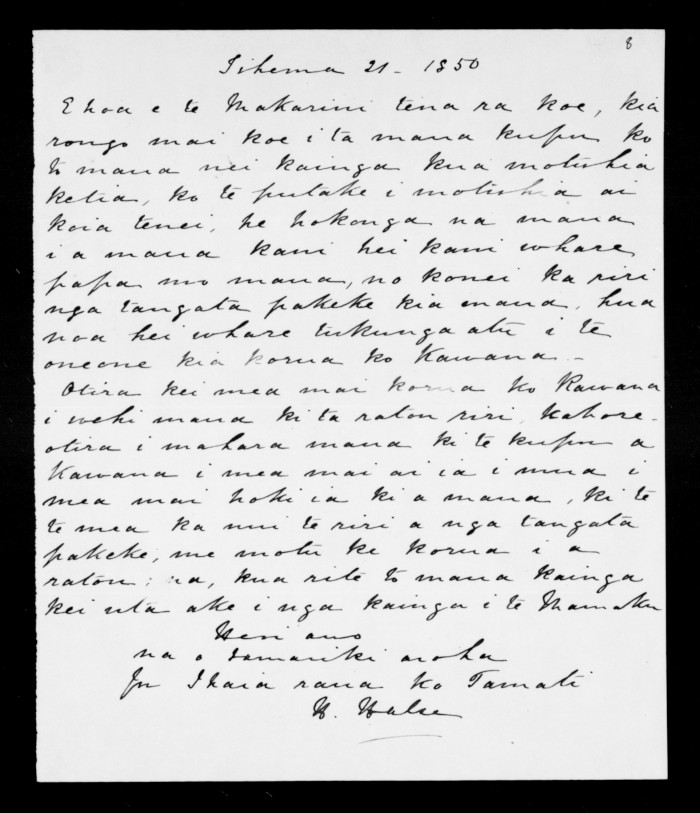 8
Tihema 21 - 1850
E hoa e te Makarini tena ra koe, kia
rongo mai koe i ta maua kupu ko
to maua nei kainga kua motuhia
ketia, ko te putake i motuhia ai
koia tenei, he hokonga na maua
i a maua kani hei kani whare
papa mo maua, no konei ka riri
nga tangata pakeke kia maua, hua
noa hei whare tukunga atu i te
oneone kia korua ko Kawana -
Otira kei mea mai korua ko Kawana
i wehi maua ki ta ratou riri, Kahore -
otira i mahara maua ki te kupu a
Kawana i mea mai ai ia i mua i
mea mai hoki ia ki a maua, ki te
te mea ka nui te riri a nga tangata
pakeke, me motu ke korua i a
ratou: na, kua rite to maua kainga
kei uta ake i nga kainga i te Mamaku
Heoi ano
na o tamariki aroha
Ihaia raua ko Tamati
H. Halse